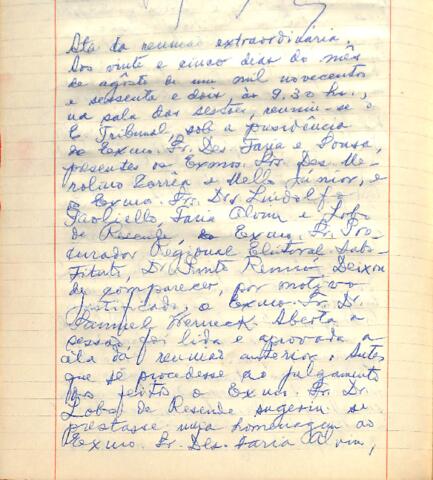 Ata da reunião extraordinária
Aos vinte e cinco dias do mês
de agôsto de um mil novecentos
e sessenta e dois, às 9,30 hs.,
na sala das sessões, reuniu-se o
E. Tribunal, sob a presidência
do Exmo. Sr. Des. Faria e Sousa,
presentes os Exmos. Srs. Des. Me-
rolino Corrêa e Mello Júnior, e
o Exmo. Sr. Drs. Lindolfo
Paoliello, Faria Alvim e Lobo
de Resende e o Exmo. Sr. Pro-
curador Regional Eleitoral Subs-
tituto, Dr. Deixou
de comparecer, por motivo
justificado, o Exmo. Sr. Dr.
Samuel Werneck. Aberta a
sessão, foi lida e aprovada a
ata da reunião anterior. Antes
que se procedesse ao julgamento
dos feitos o Exmo. Sr. Dr.
Lobo de Resende sugeriu se
prestasse uma homenagem ao
Exmo. Sr. Des. Faria Alvim,